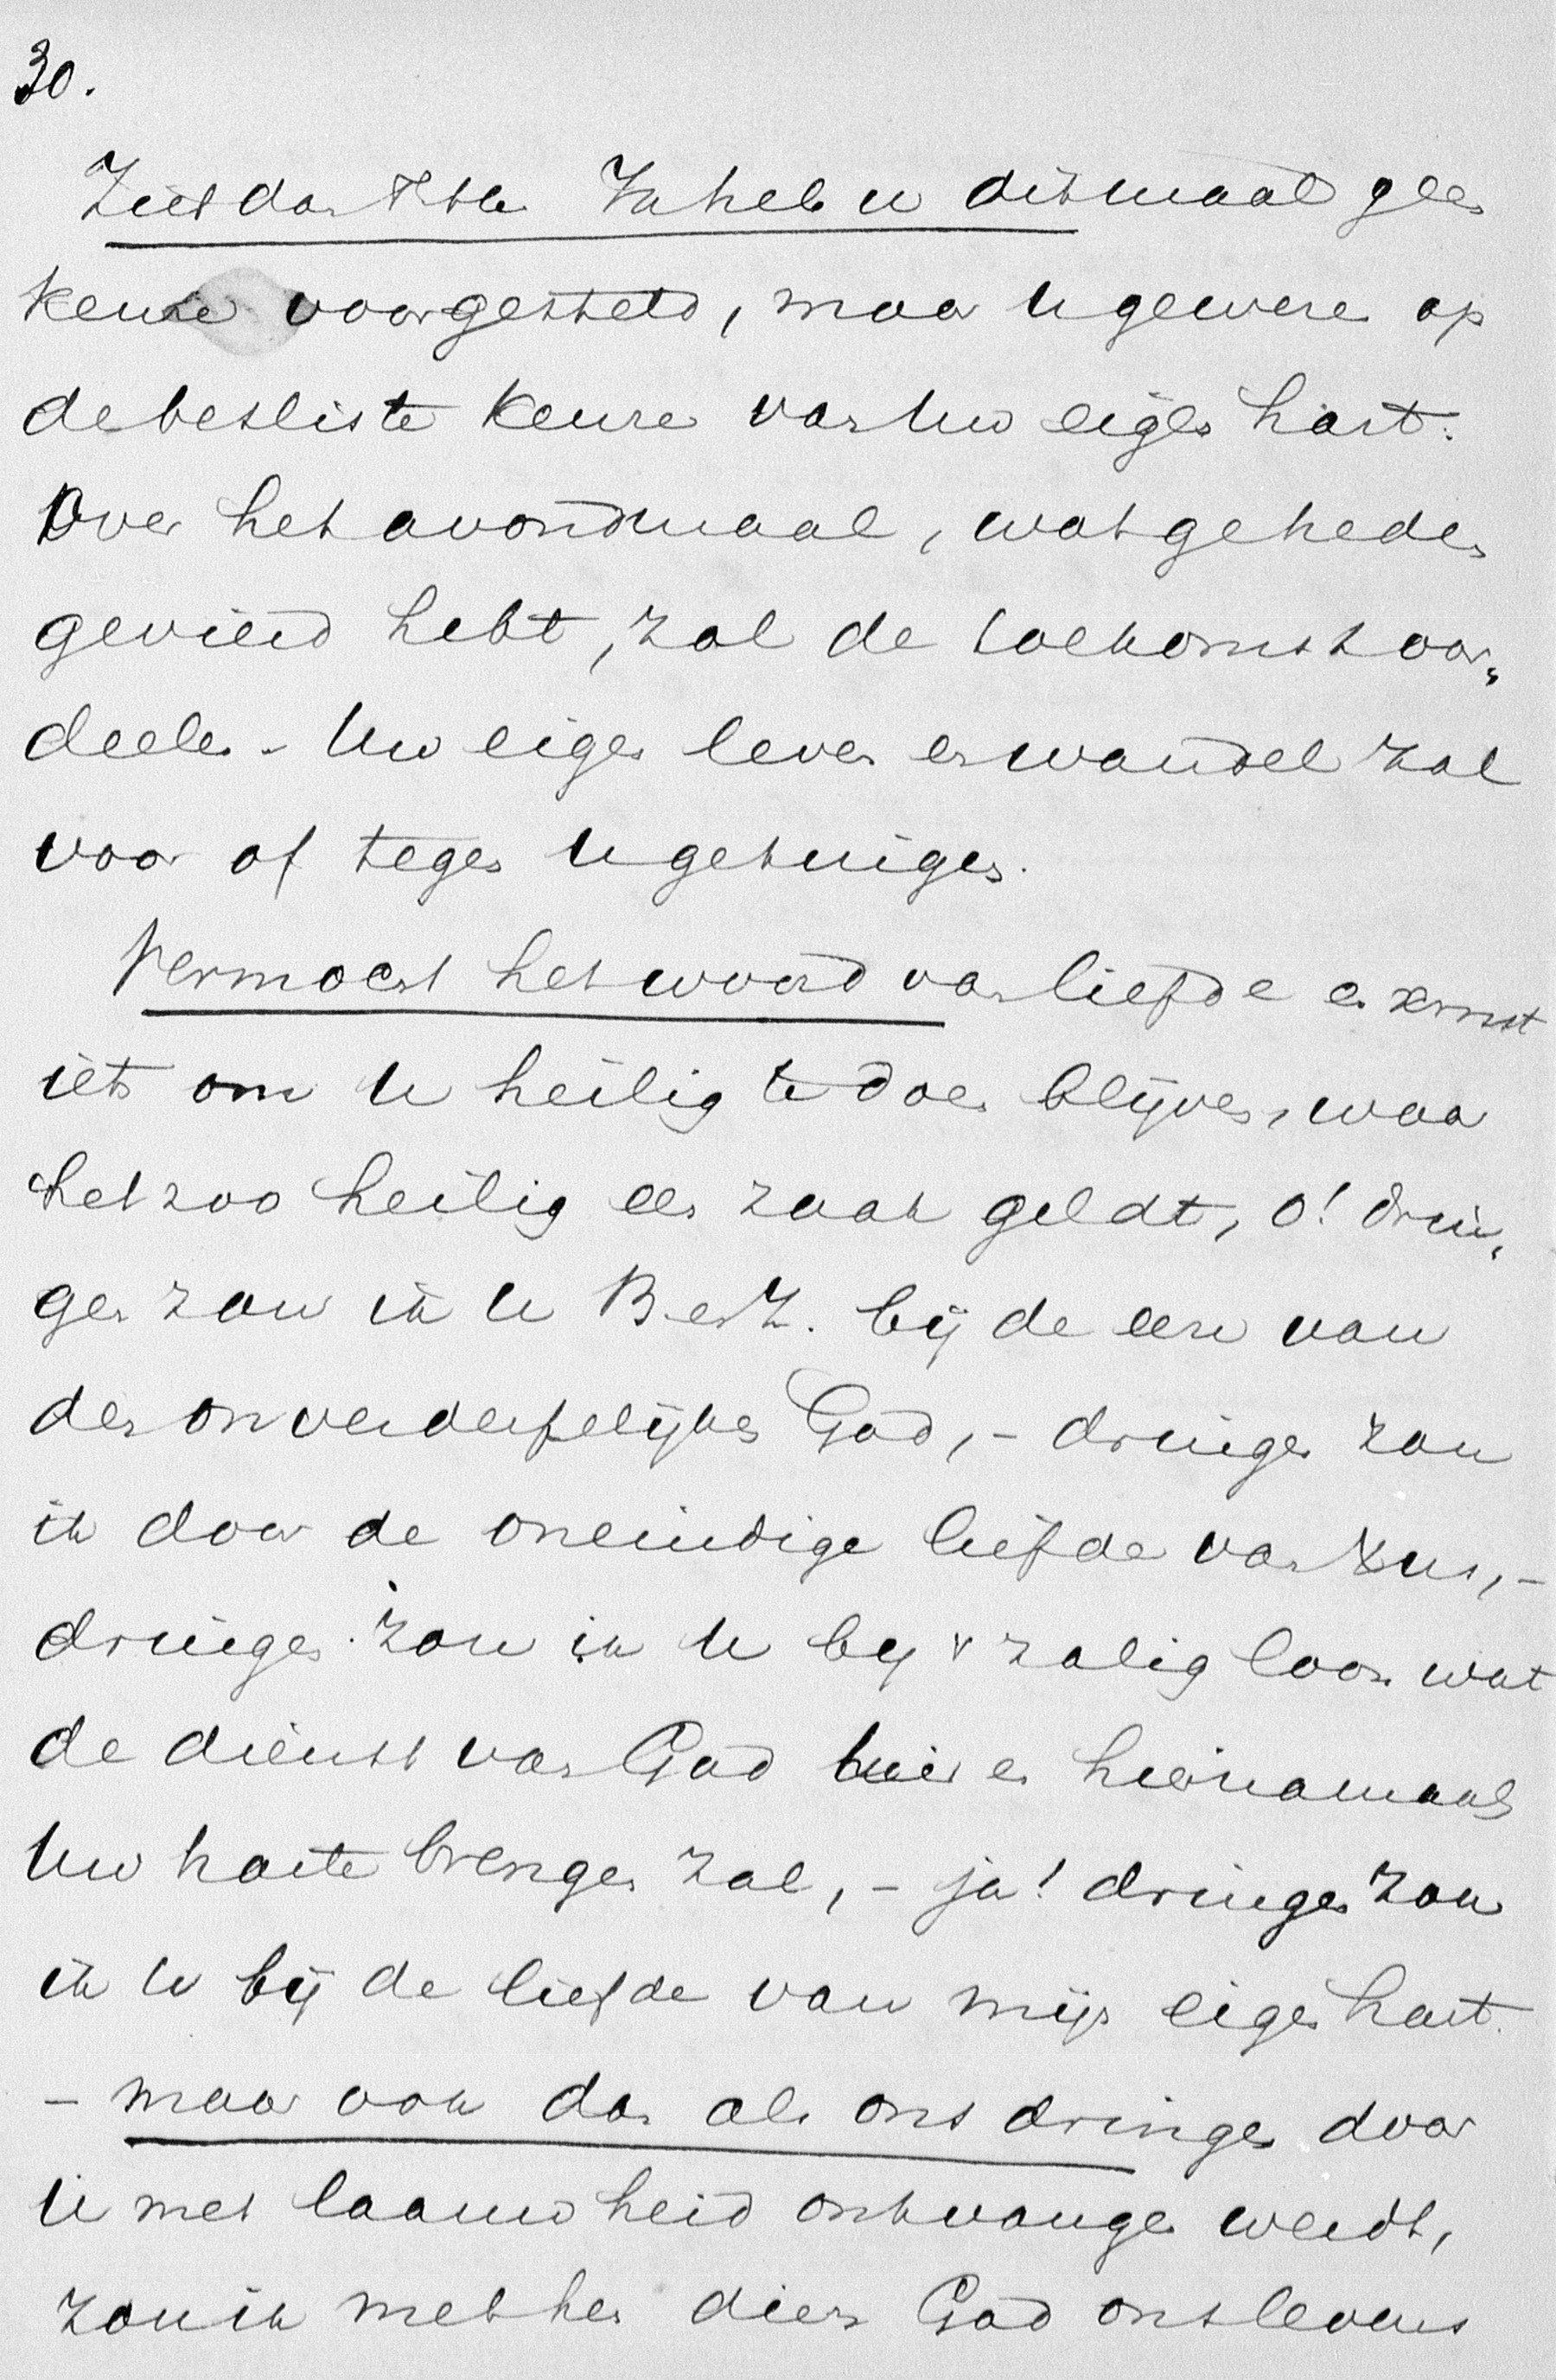 30.
Ziet daar Ik heb u ditmaal geen
keuze voorgesteld, maar U gewezen op
de besliste keuze van Uw eigen hart.
Over het avondmaal, wat ge heden
gevierd hebt, zal de toekomst oor„
deelen - Uw eigen leven en wandel zal
voor of tegen U getuigen.
Vermocht het woord van liefde en ernst
iets om U heilig te doen blijven, waar
het zoo heilig een zaak geldt, o! drin„
gen zou ik U B en Z. bij de eere van
den onverderfelijken God, - dringen zou
ik door de oneindige liefde van Xus, -
dringen zou ik U bij 't zalig loon wat
de dienst van God hier en hiernamaals
Uw harte brengen zal, - ja! dringen zou
ik U bij de liefde van mijn eigen hart.
- maar ook dan als ons dringen door
U met laauwheid ontvangen werdt,
zou ik met hen dien God ons levens